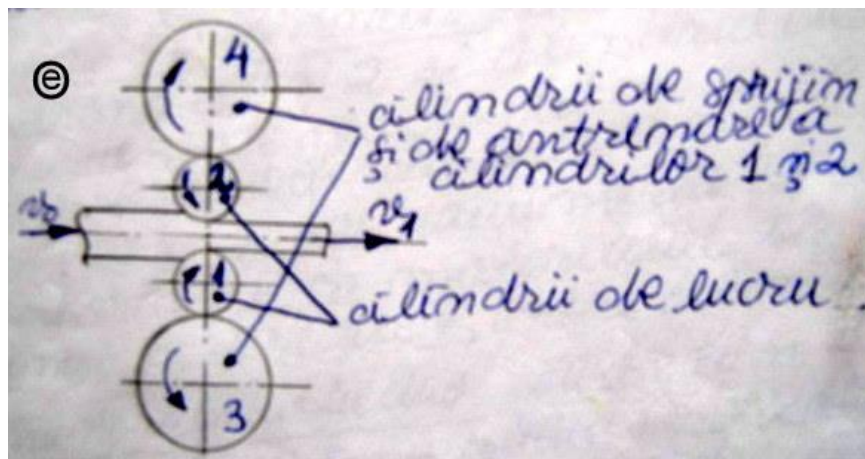 e
4
cilindrii de sprijin
și de antrenare a
cilindrilor 1 și 2
2
v₀
v₁
1
cilindrii de lucru
3